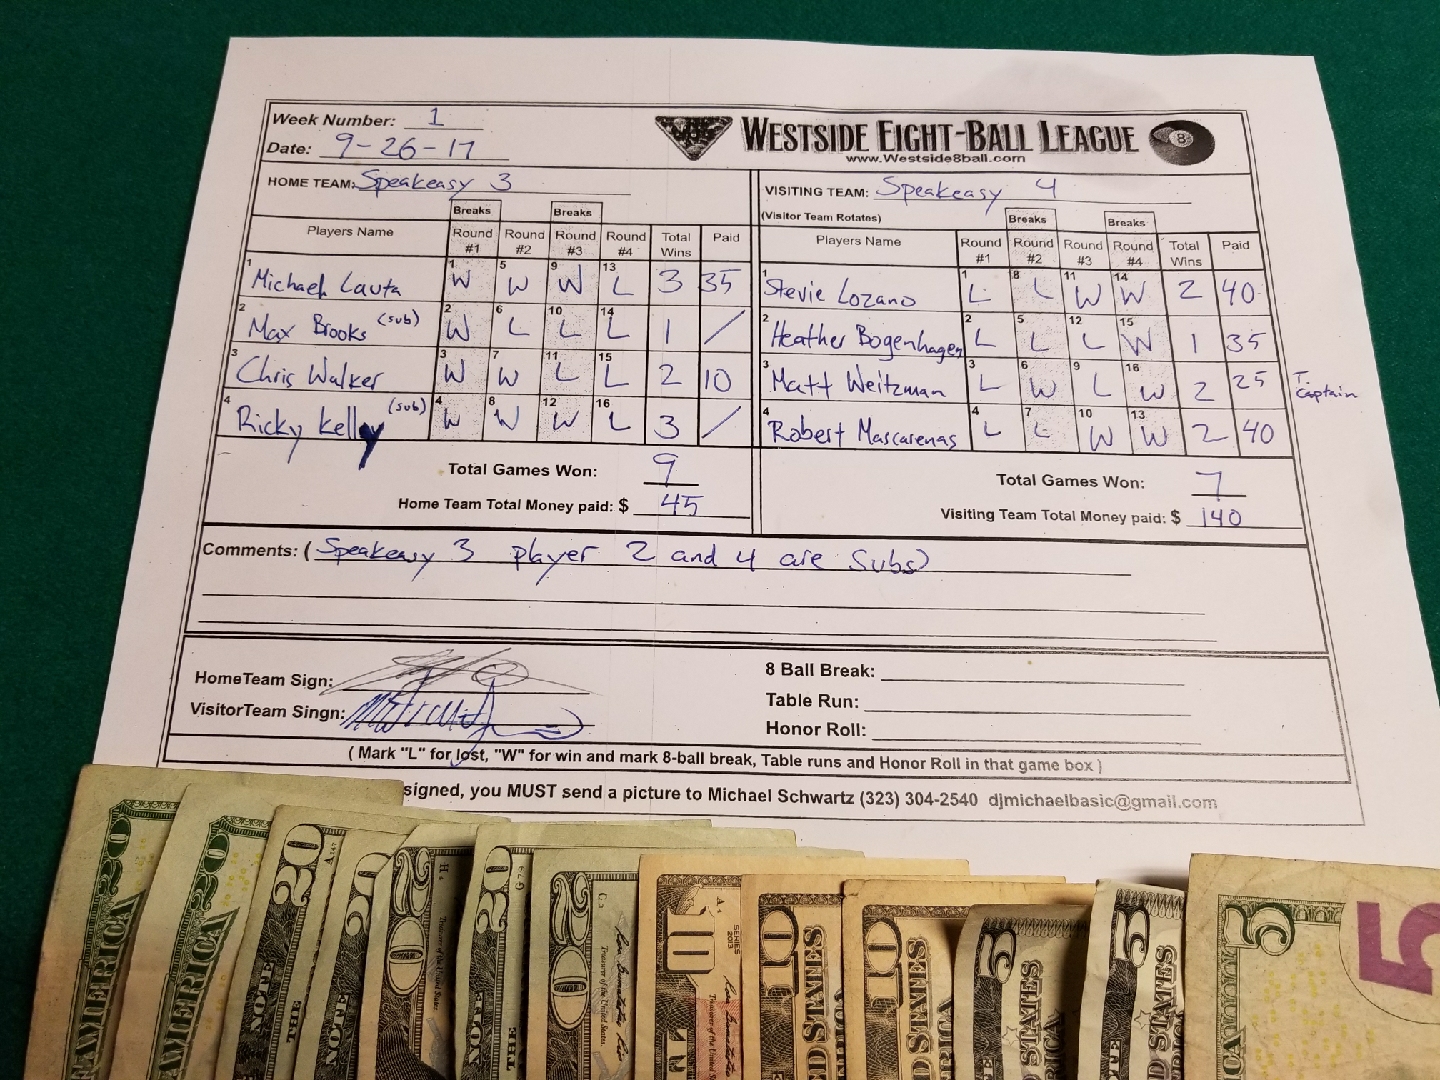 Week Number: 1
Date: 9-26-17
WESTSIDE EIGHT-BALL LEAGUE
www.Westside8ball.com
8
HOME TEAM: Speakeasy 3
VISITING TEAM: Speakeasy 4
(Visitor Team Rotatns)
Breaks Breaks
Breaks Breaks
Players Name Round #1 Round #2 Round #3 Round #4 Total Wins Paid
Players Name Round #1 Round #2 Round #3 Round #4 Total Wins Paid
1 Michael Lauta 1 W 5 W 9 W 13 L 3 35
1 Stevie Lozano 1 L 8 L 11 W 14 W 2 40
2 Max Brooks (sub) 2 W 6 L 10 L 14 L 1 /
2 Heather Bogenhagen 2 L 5 L 12 L 15 W 1 35
3 Chris Walker 3 W 7 W 11 L 15 L 2 10
3 Matt Weitzman 3 L 6 W 9 L 16 W 2 25 T Captain
4 Ricky Kelly (sub) 4 W 8 W 12 W 16 L 3 /
4 Robert Mascarenas 4 L 7 L 10 W 13 W 2 40
Total Games Won: 9
Total Games Won: 7
Home Team Total Money paid: $ 45
Visiting Team Total Money paid: $ 140
Comments: (Speakeasy 3 player 2 and 4 are Subs)
HomeTeam Sign:
VisitorTeam Singn:
8 Ball Break:
Table Run:
Honor Roll:
( Mark "L" for lost, "W" for win and mark 8-ball break, Table runs and Honor Roll in that game box )
signed, you MUST send a picture to Michael Schwartz (323) 304-2540 djmichaelbasic@gmail.com
20 20 20 20 20 20 20 10 10 10 5 5 5 5
AMERICA
AMERICA
NOTE
THE
NOTE
NOTE
THE
SERIES 2013
STATES
STATES
STATES
STATES